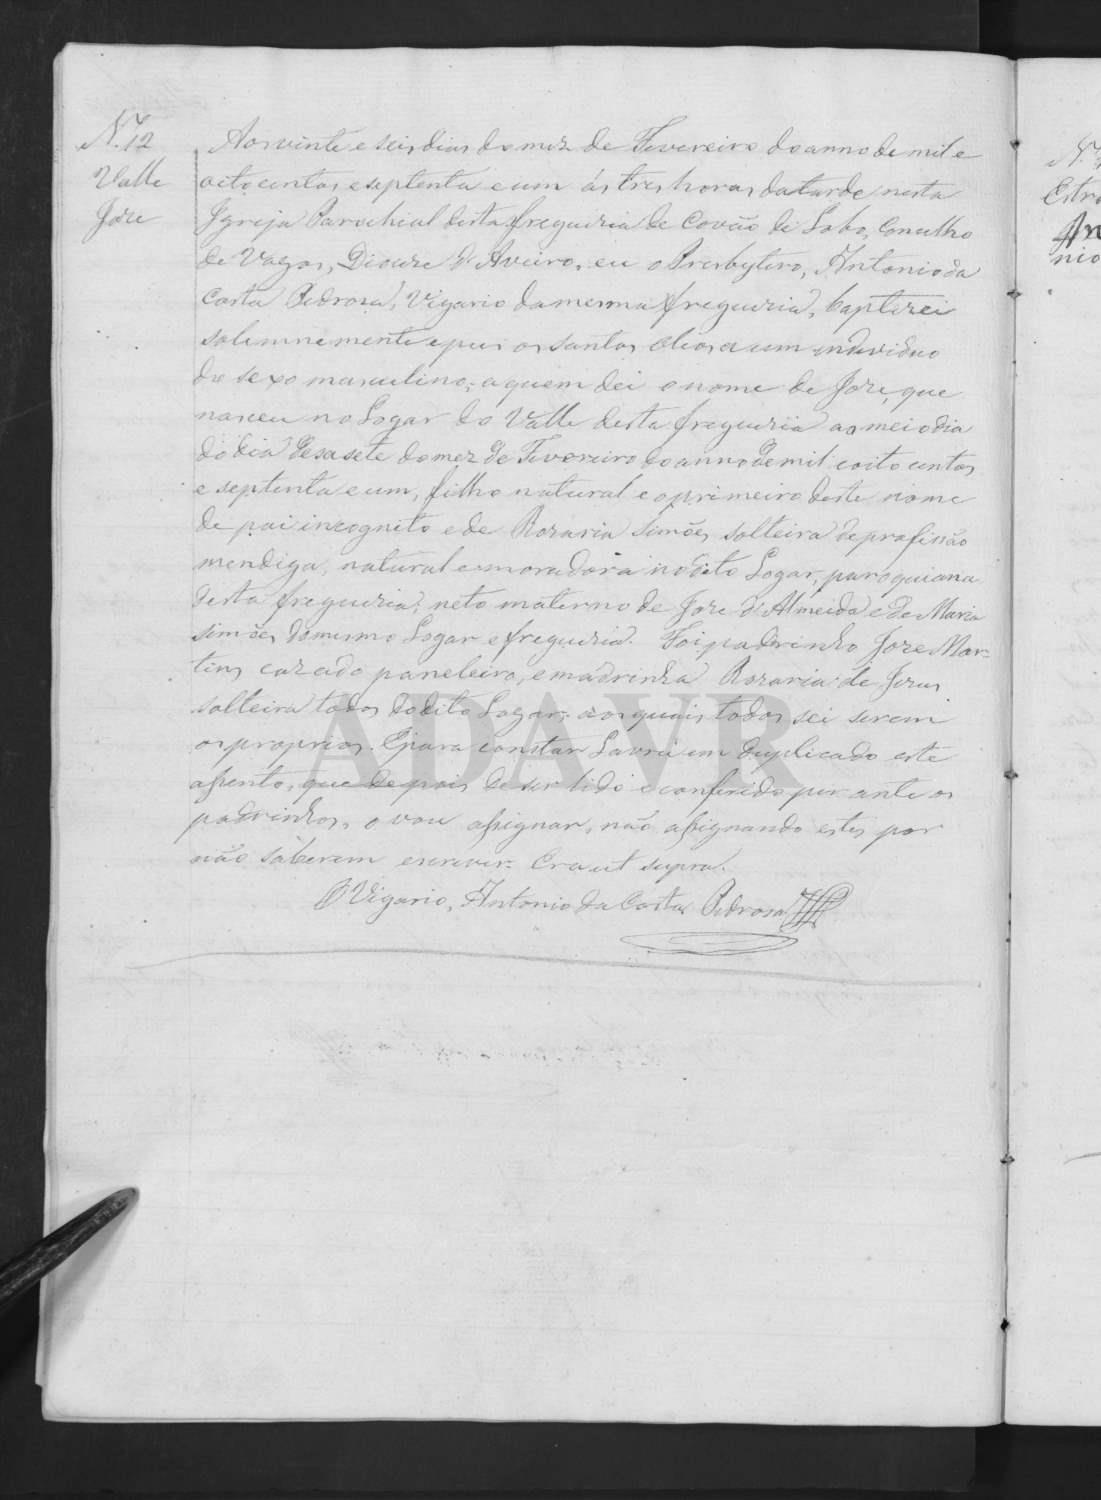 N.º 12
Valle
Joze
Aos vinte e seis dias do mez de Fevereiro do anno de mil e
oito centos e septenta e um ás tres horas da tarde nesta
Igreja Parochial desta freguezia de Covão de Lobo, Concelho
de Vagos, Diocese d'Aveiro, eu o Presbytero, Antonio da
Costa Pedrosa, Vigario da mesma freguezia, baptizei
solemnemente e puz os santos oleos a um individuo
do sexo masculino; a quem dei o nome de Joze, que
nasceu no Logar do Valle desta freguezia ao meio dia
do dia desasete do mez de Fevereiro do anno de mil e oito centos
e septenta e um, filho natural e o primeiro deste nome
de pai incognito e de Rozaria Simões, solteira de profissão
mendiga, natural e moradora no dito Logar, paroquiana
desta freguezia; neto materno de Joze d'Almeida e de Maria
Simões do mesmo Logar e freguezia. Foi padrinho Joze Mar=
tins cazado paneleiro, e madrinha Rozaria de Jezus
solteira todos do dito Logar; aos quais todos sei serem
os proprios. E para constar Lavrei em duplicado este
assento, que depois de ser lido e conferido perante os
padrinhos, o vou assignar, não assignando estes por
não saberem escrever. Era ut supra.
O Vigario, Antonio da Costa Pedrosa
ADAVR
N.º
Estr
An
nio